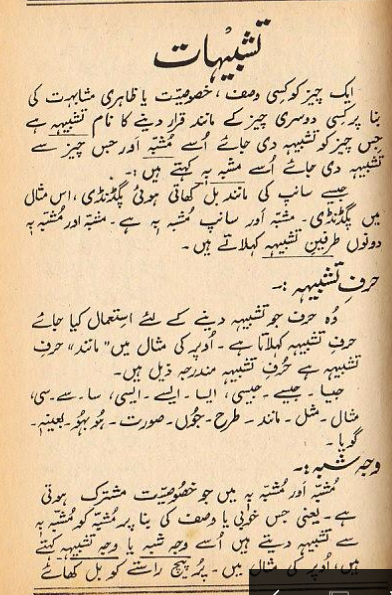 تشبیہات
ایک چیز کو کسی وصف، خصوصیّت یا ظاہری مشابہت کی
بنا پر کسی دوسری چیز کے مانند قرار دینے کا نام تشبیہہ ہے
جس چیز کو تشبیہہ دی جائے اُسے مشبّہ اور جس چیز سے
تشبیہہ دی جائے اُسے مشبہ بہ کہتے ہیں :۔
جیسے سانپ کی مانند بل کھاتی ہوئی پگڈنڈی، اس مثال
میں پگڈنڈی۔ مشبّہ اور سانپ مُشبّہ بہ ہے۔ مشبّہ اور مُشبّہ بہ
دونوں طرفینِ تشبیہہ کہلاتے ہیں۔
حرفِ تشبیہہ :۔
وُہ حرف جو تشبیہہ دینے کے لئے استعمال کیا جائے
حرفِ تشبیہہ کہلاتا ہے۔ اُوپر کی مثال میں "مانند" حرفِ
تشبیہہ ہے حُرفِ تشبیہہ مندرجہ ذیل ہیں۔
جیسا۔ جیسے۔ جیسی، ایسا۔ ایسے۔ ایسی، سا۔ سے۔ سی،
مثال۔ مثل۔ مانند۔ طرح۔ جُوں۔ صورت۔ ہُو بہُو۔ بعینہٖ۔
گویا۔
وجہِ شبہ :۔
مُشبّہ اور مُشبّہ بہ میں جو خصُوصیّت مشترک ہوتی
ہے۔ یعنی جس خوبی یا وصف کی بنا پر مُشبّہ کو مُشبّہ بہ
سے تشبیہہ دیتے ہیں اُسے وجہِ شبہ یا وجہِ تشبیہہ کہتے
ہیں، اُوپر کی مثال میں۔ پُر پیچ راستے کو بل کھائے